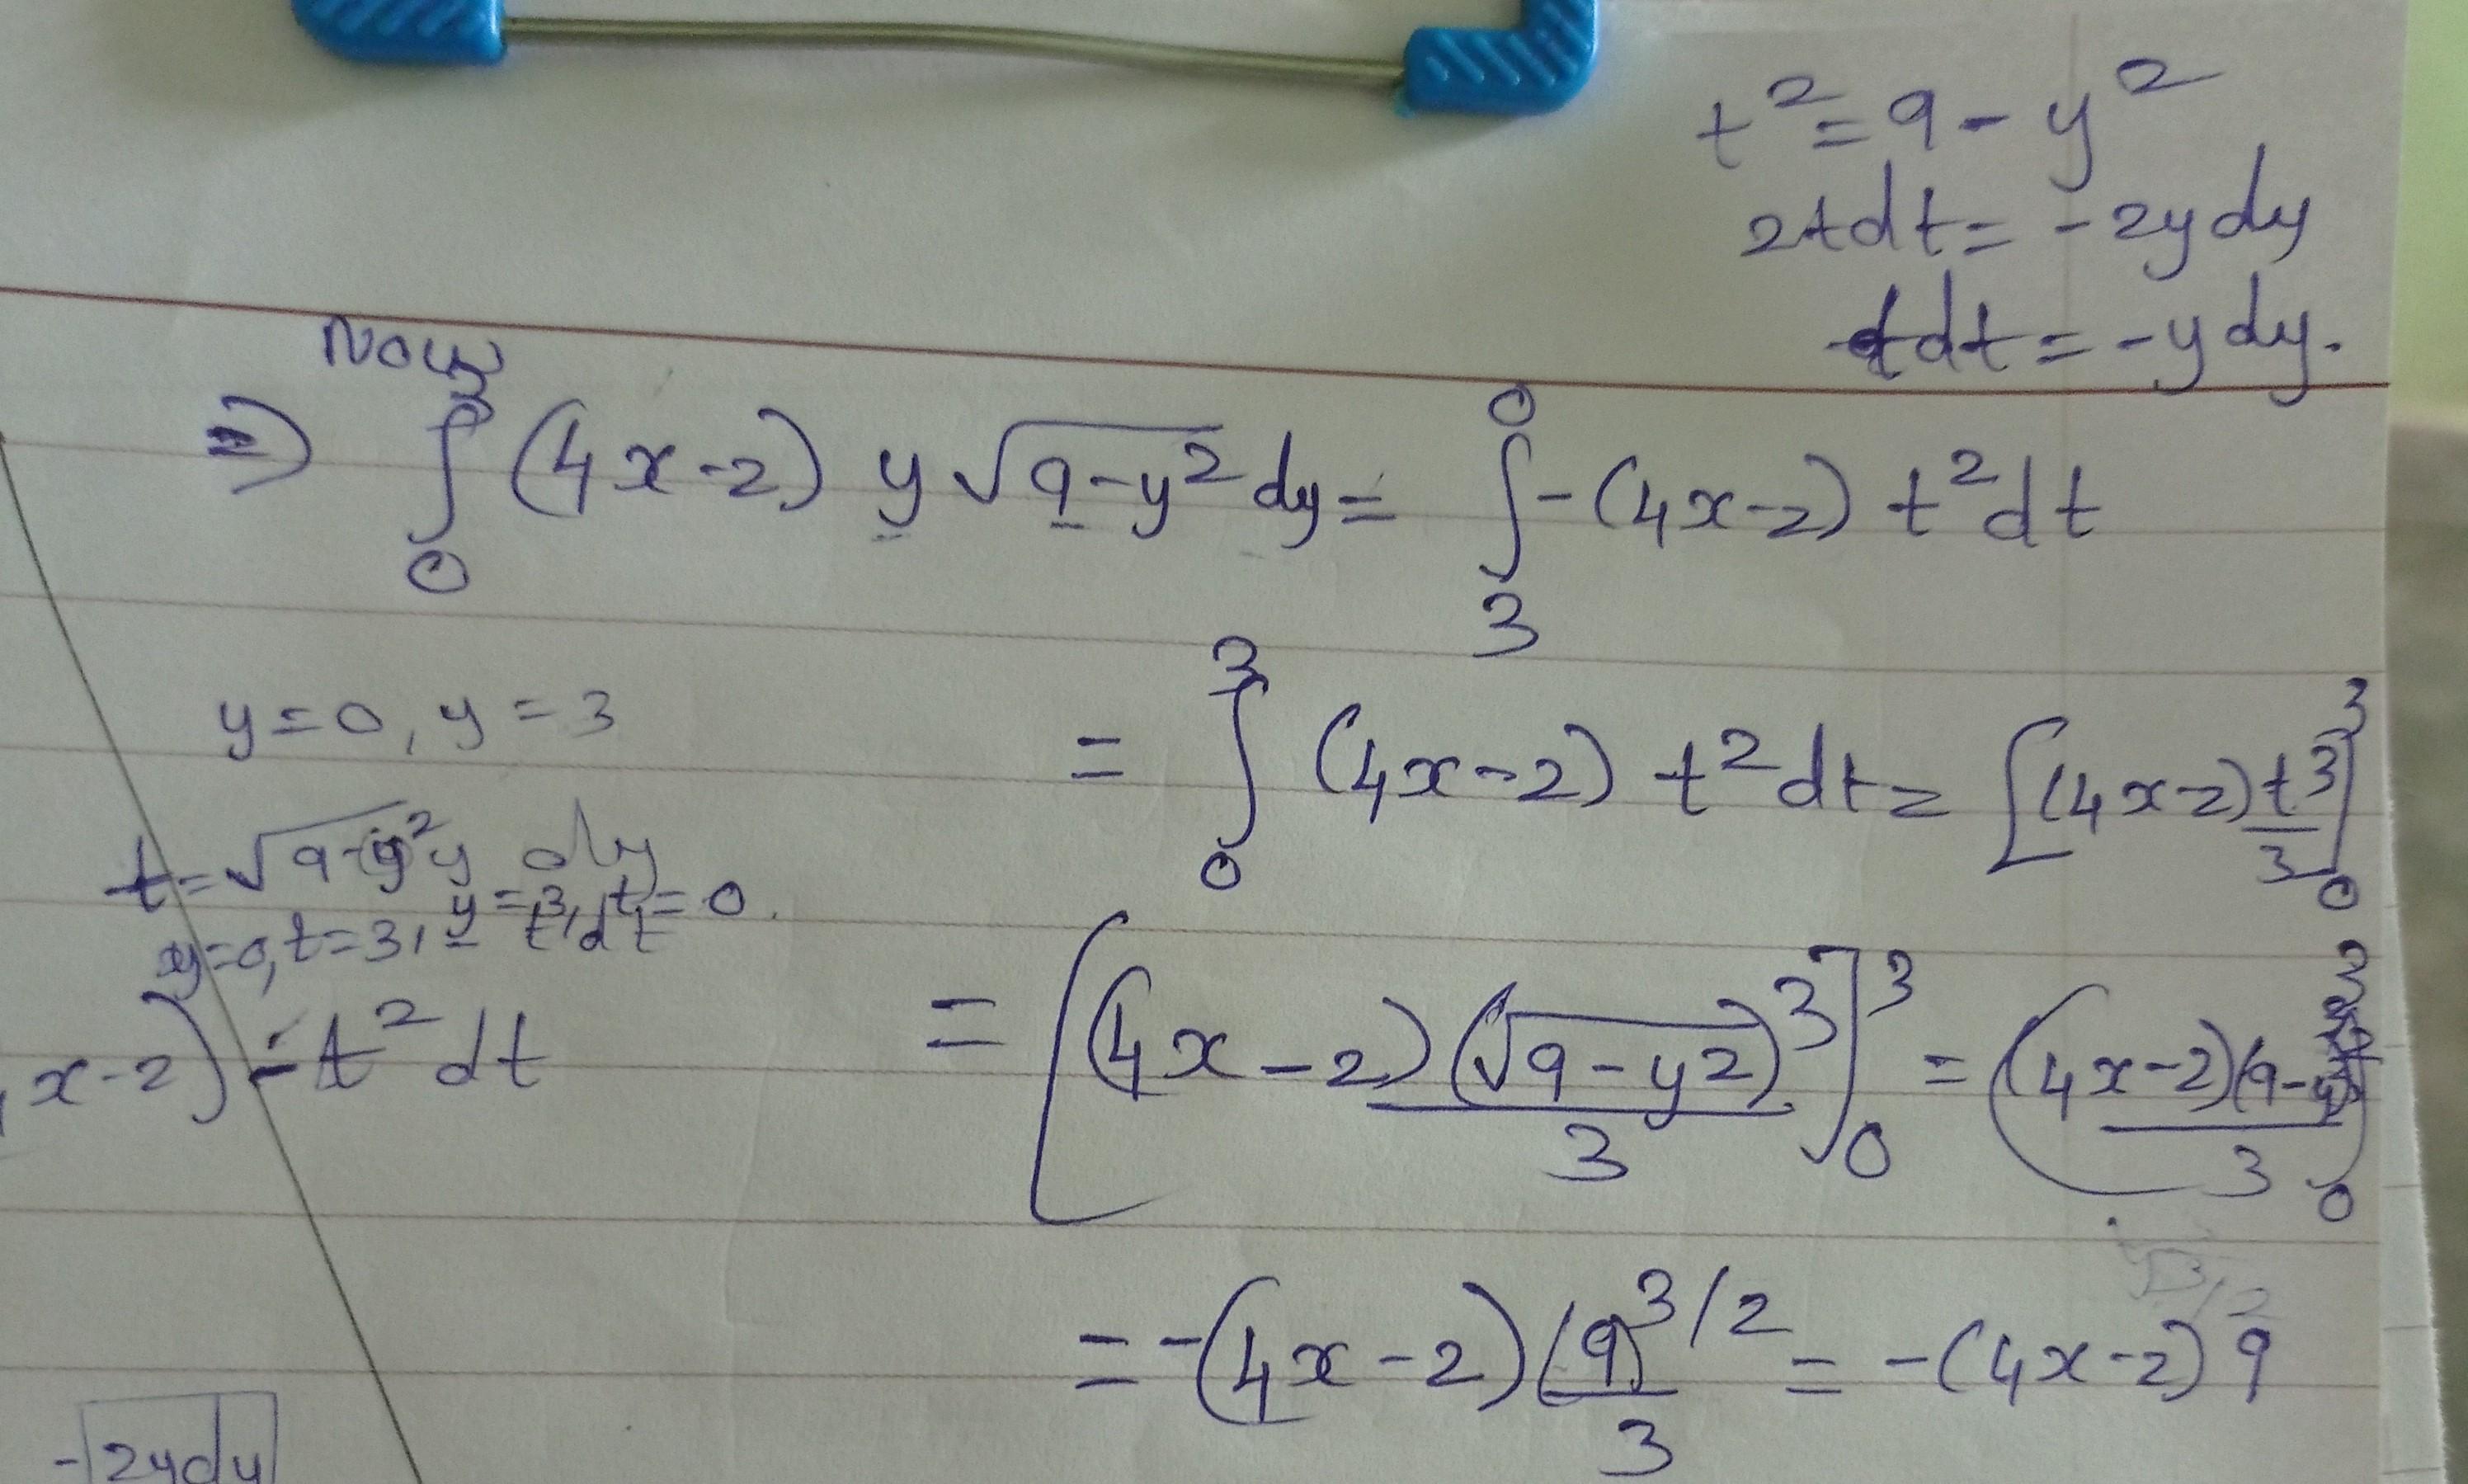 t² = 9 - y²
2tdt = -2y dy
tdt = -y dy.
Now
⇒ ∫₀³ (4x-2) y √(9-y²) dy = ∫₃⁰ -(4x-2) t² dt
y=0, y=3
= ∫₀³ (4x-2) t² dt = [(4x-2) t³/3]₀³
t = √(9-y²)
y=0, t=3, y=3, t=0.
= [(4x-2)(√(9-y²))³/3]₀³ = ((4x-2)(9-
3)₀³
x-2) - t² dt
= -(4x-2) (9)^3/2/3 = -(4x-2) 9
-2ydy